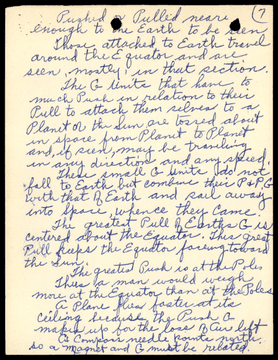 7
Pushed or Pulled near
enough to the Earth to be seen
Those attached to Earth travel
around the Equator and are
seen, mostly, in that section.
The G Units that have to
much Push in relation to their
Pull to attach them selves to a
Planet or the Sun are tossed about
in space from Planet to Planet
and, if seen, may be traveling
in any direction and any speed.
These small G Units do not
fall to Earth but combine their P & P G
with that of Earth and sail away
into Space, whence they came
The greatest Pull of Earths G is
centered about the Equator. This great
Pull forces the Equator facing toward
the Sun.
The greatest Push is at the Poles
Thus a man would weigh
more at the Equator than at the Poles
A Plane flies faster at its
ceiling because the Push G
makes up for the loss of Air lift
A Compass needle points north
so a magnet and G must be related.